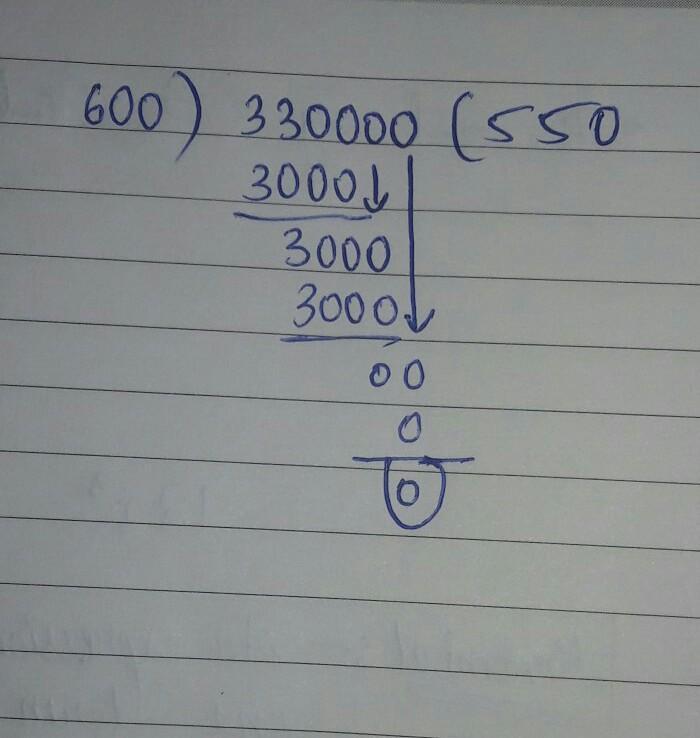 600 ) 330000 ( 550
3000↓
3000
3000
00
0
0